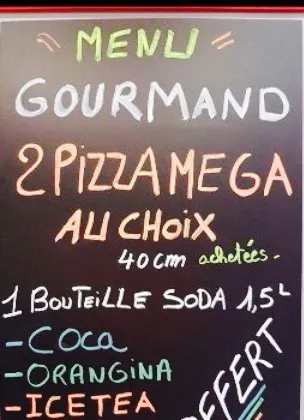 MENU
GOURMAND
2 PIZZA MEGA
AU CHOIX
40 cm achetées.
1 BOUTEILLE SODA 1,5L
- COCA
- ORANGINA
- ICETEA
OFFERT